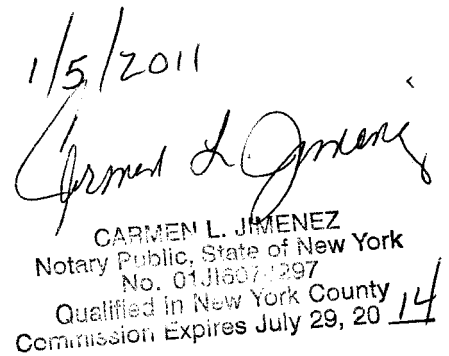 1/5/2011
Carmen L. Jimenez
CARMEN L. JIMENEZ
Notary Public, State of New York
No.
Qualified in New York County
Commission Expires July 29, 20 14